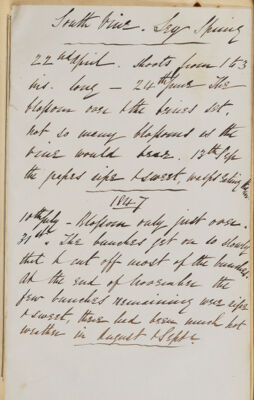 South Vine. Ley Spring
22nd April. Shoots from 1 to 3
ins. long - 24th June The
blossom over & the berries set,
not so many blossoms as the
vine would bear. 13th Sep
the grapes ripe & sweet, wasps eating them
1847
10th July - Blossom only just over.
31st. The bunches get on so slowly
that I cut off most of the bunches.
At the end of November the
few bunches remaining were ripe
& sweet, there had been much hot
weather in August & Septr.